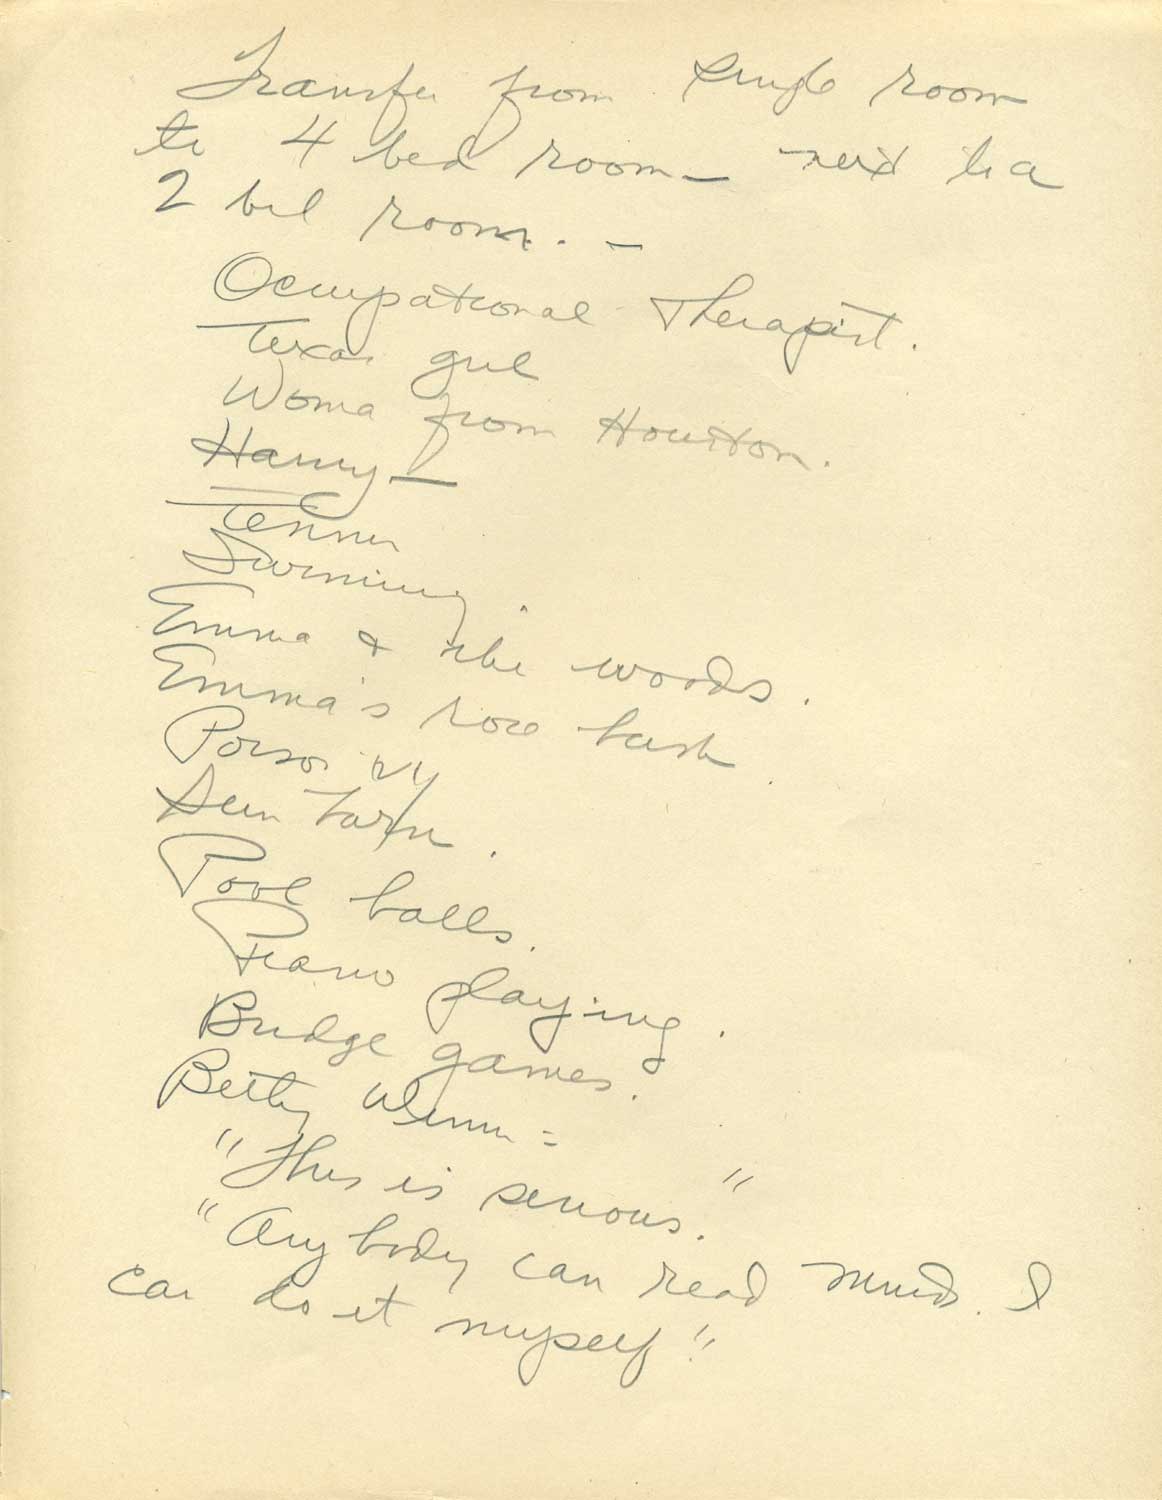 Transfer from single room
to 4 bed room – next to a
2 bed room. –
Occupational Therapist.
Texas girl
Woma from Houston.
Harry –
Tennis
Swimming.
Emma & the woods.
Emma's rose bush.
Poison ivy
Sun
Pool balls.
Piano playing.
Bridge games.
Betty Winn =
"This is serious."
"Any body can read minds. I
can do it myself"